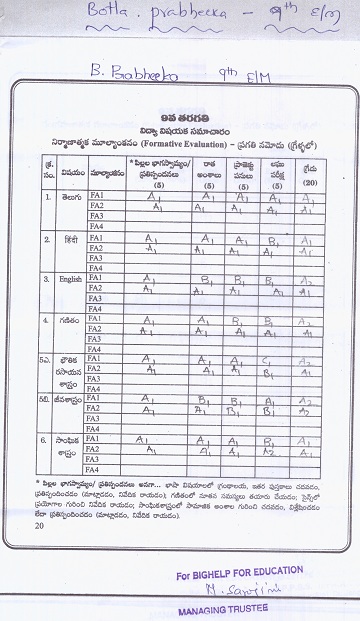 Botla . prabheeka - 9th E/M
B. Prabheeka 9th E/M
9వ తరగతి
విద్యా విషయక సమాచారం
నిర్మాణాత్మక మూల్యాంకనం (Formative Evaluation) – ప్రగతి నమోదు (గ్రేళ్ళలో)
క్ర.సం. విషయం మూల్యాంకనం * పిల్లల భాగస్వామ్యం/ ప్రతిస్పందనలు (5) రాత అంశాలు (5) ప్రాజెక్టు పనులు (5) లఘు పరీక్ష (5) గ్రేడు (20)
1. తెలుగు FA1 A1 A1 A1 A1 A1
FA2 A1 A1 A1 A1 A1
FA3
FA4
2. हिंदी FA1 A1 A1 A1 B1 A1
FA2 A1 A1 A1 A1 A1
FA3
FA4
3. English FA1 A1 B1 B1 B1 A2
FA2 A1 A1 A1 A1 A1
FA3
FA4
4. గణితం FA1 A1 A1 B1 B1 A2
FA2 A1 A1 A1 A1 A1
FA3
FA4
5ఎ. భౌతిక రసాయన శాస్త్రం FA1 A1 A1 A1 C1 A2
FA2 A1 A1 A1 B1 A1
FA3
FA4
5బి. జీవశాస్త్రం FA1 A1 B1 B1 A1 A2
FA2 A1 A1 B1 B1 A2
FA3
FA4
6. సాంఘిక శాస్త్రం FA1 A1 A1 A1 B1 A1
FA2 A1 A1 A1 A2 A1
FA3
FA4
* పిల్లల భాగస్వామ్యం/ ప్రతిస్పందనలు అనగా... భాషా విషయాలలో గ్రంథాలయ, ఇతర పుస్తకాలు చదవడం,
ప్రతిస్పందించడం (మాట్లాడడం, నివేదిక రాయడం); గణితంలో నూతన సమస్యలు తయారు చేయడం; సైన్స్‌లో
ప్రయోగాల గురించి నివేదిక రాయడం; సాంఘికశాస్త్రంలో సామాజిక అంశాల గురించి చదవడం, విశ్లేషించడం
లేదా ప్రతిస్పందించడం (మాట్లాడడం, నివేదిక రాయడం).
20
For BIGHELP FOR EDUCATION
M. Sarojini
MANAGING TRUSTEE